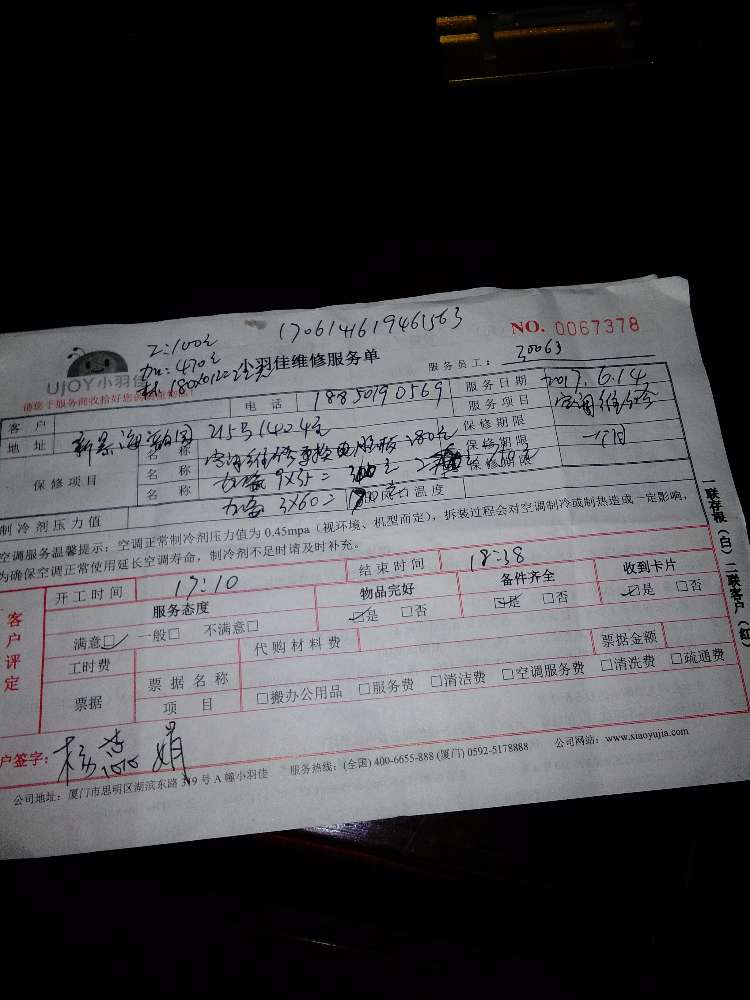 170614619461563
NO. 0067378
工:100元
加:470元
UJOY小羽佳
小羽佳维修服务单
服务员工: 20063
客户
电话 18850190569
服务日期 2017.6.14
地址 新景海韵园 215号1404室
服务项目 空调维修
保修项目
名称 空调维修更换电脑板180元
保修期限 一个月
名称 加氟 9X35=
保修期限
名称 加氟 3X60=
保修期限
制冷剂压力值
温度
空调服务温馨提示:空调正常制冷剂压力值为 0.45mpa(视环境、机型而定),拆装过程会对空调制冷或制热造成一定影响,
为确保空调正常使用延长空调寿命,制冷剂不足时请及时补充。
一联存根(白)二联客户(红)
客户评定
开工时间 17:10
结束时间 18:38
服务态度
物品完好
备件齐全
收到卡片
满意☑ 一般□ 不满意□
☑是 □否
☑是 □否
☑是 □否
工时费
代购材料费
票据
票据名称
票据金额
项目
□搬办公用品 □服务费 □清洁费 □空调服务费 □清洗费 □疏通费
户签字:
公司地址:厦门市思明区湖滨东路 319 号 A 幢小羽佳
服务热线:(全国) 400-6655-888 (厦门) 0592-5178888
公司网站:www.xiaoyujia.com